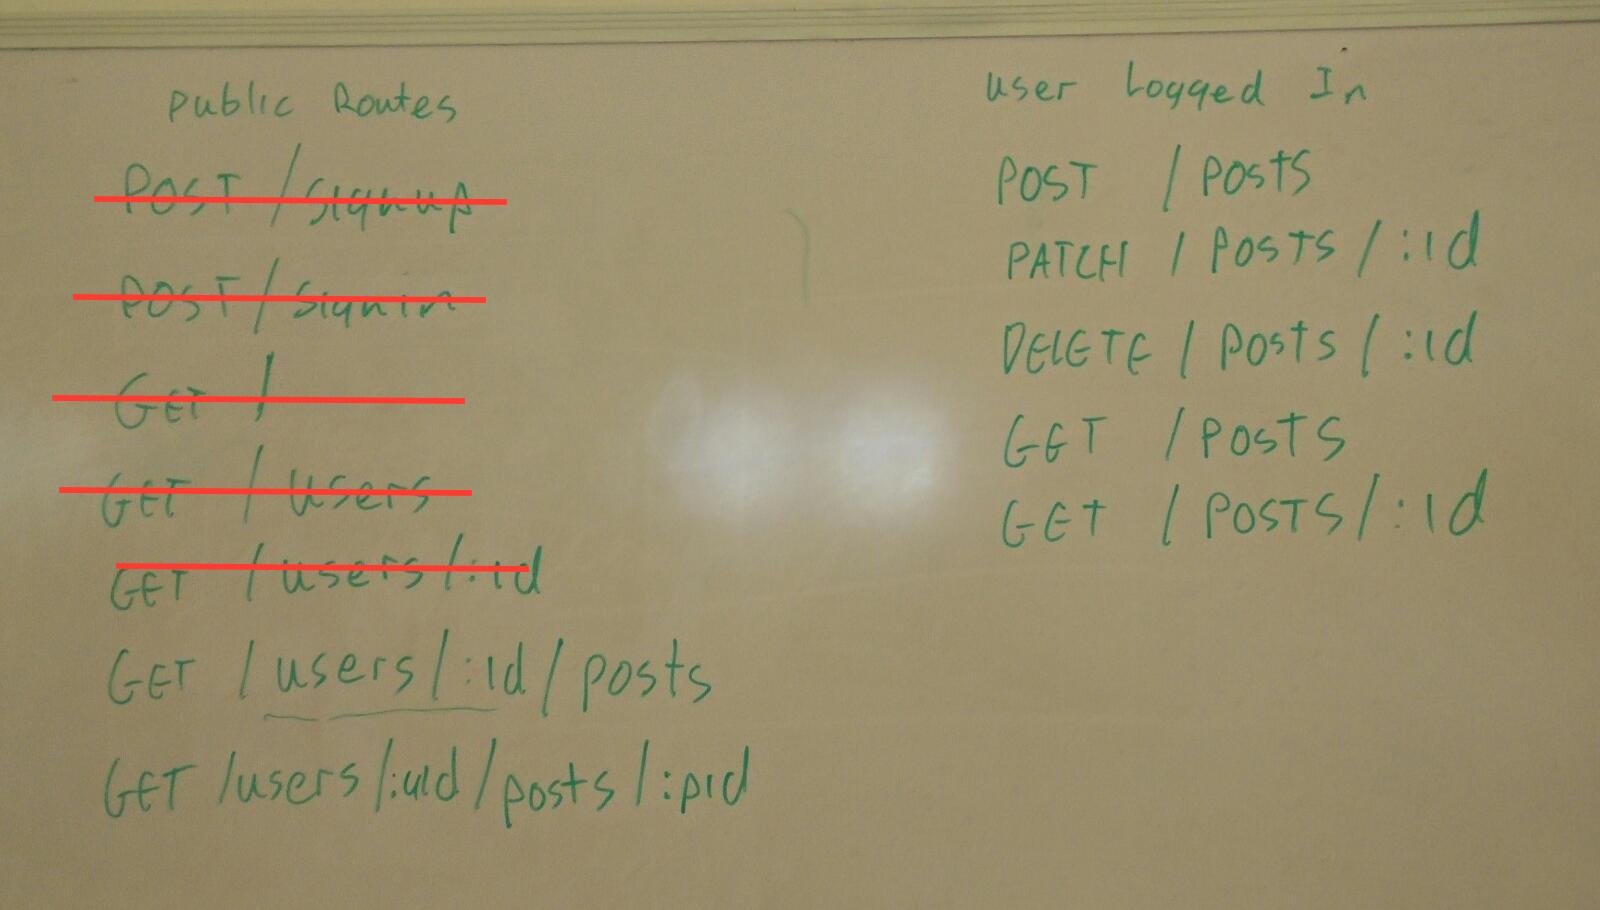 public Routes
POST /signup
POST /signin
GET /
GET /users
GET /users/:id
GET /users/:id/posts
GET /users/:uid/posts/:pid
user Logged In
POST /posts
PATCH /posts/:id
DELETE /posts/:id
GET /posts
GET /posts/:id